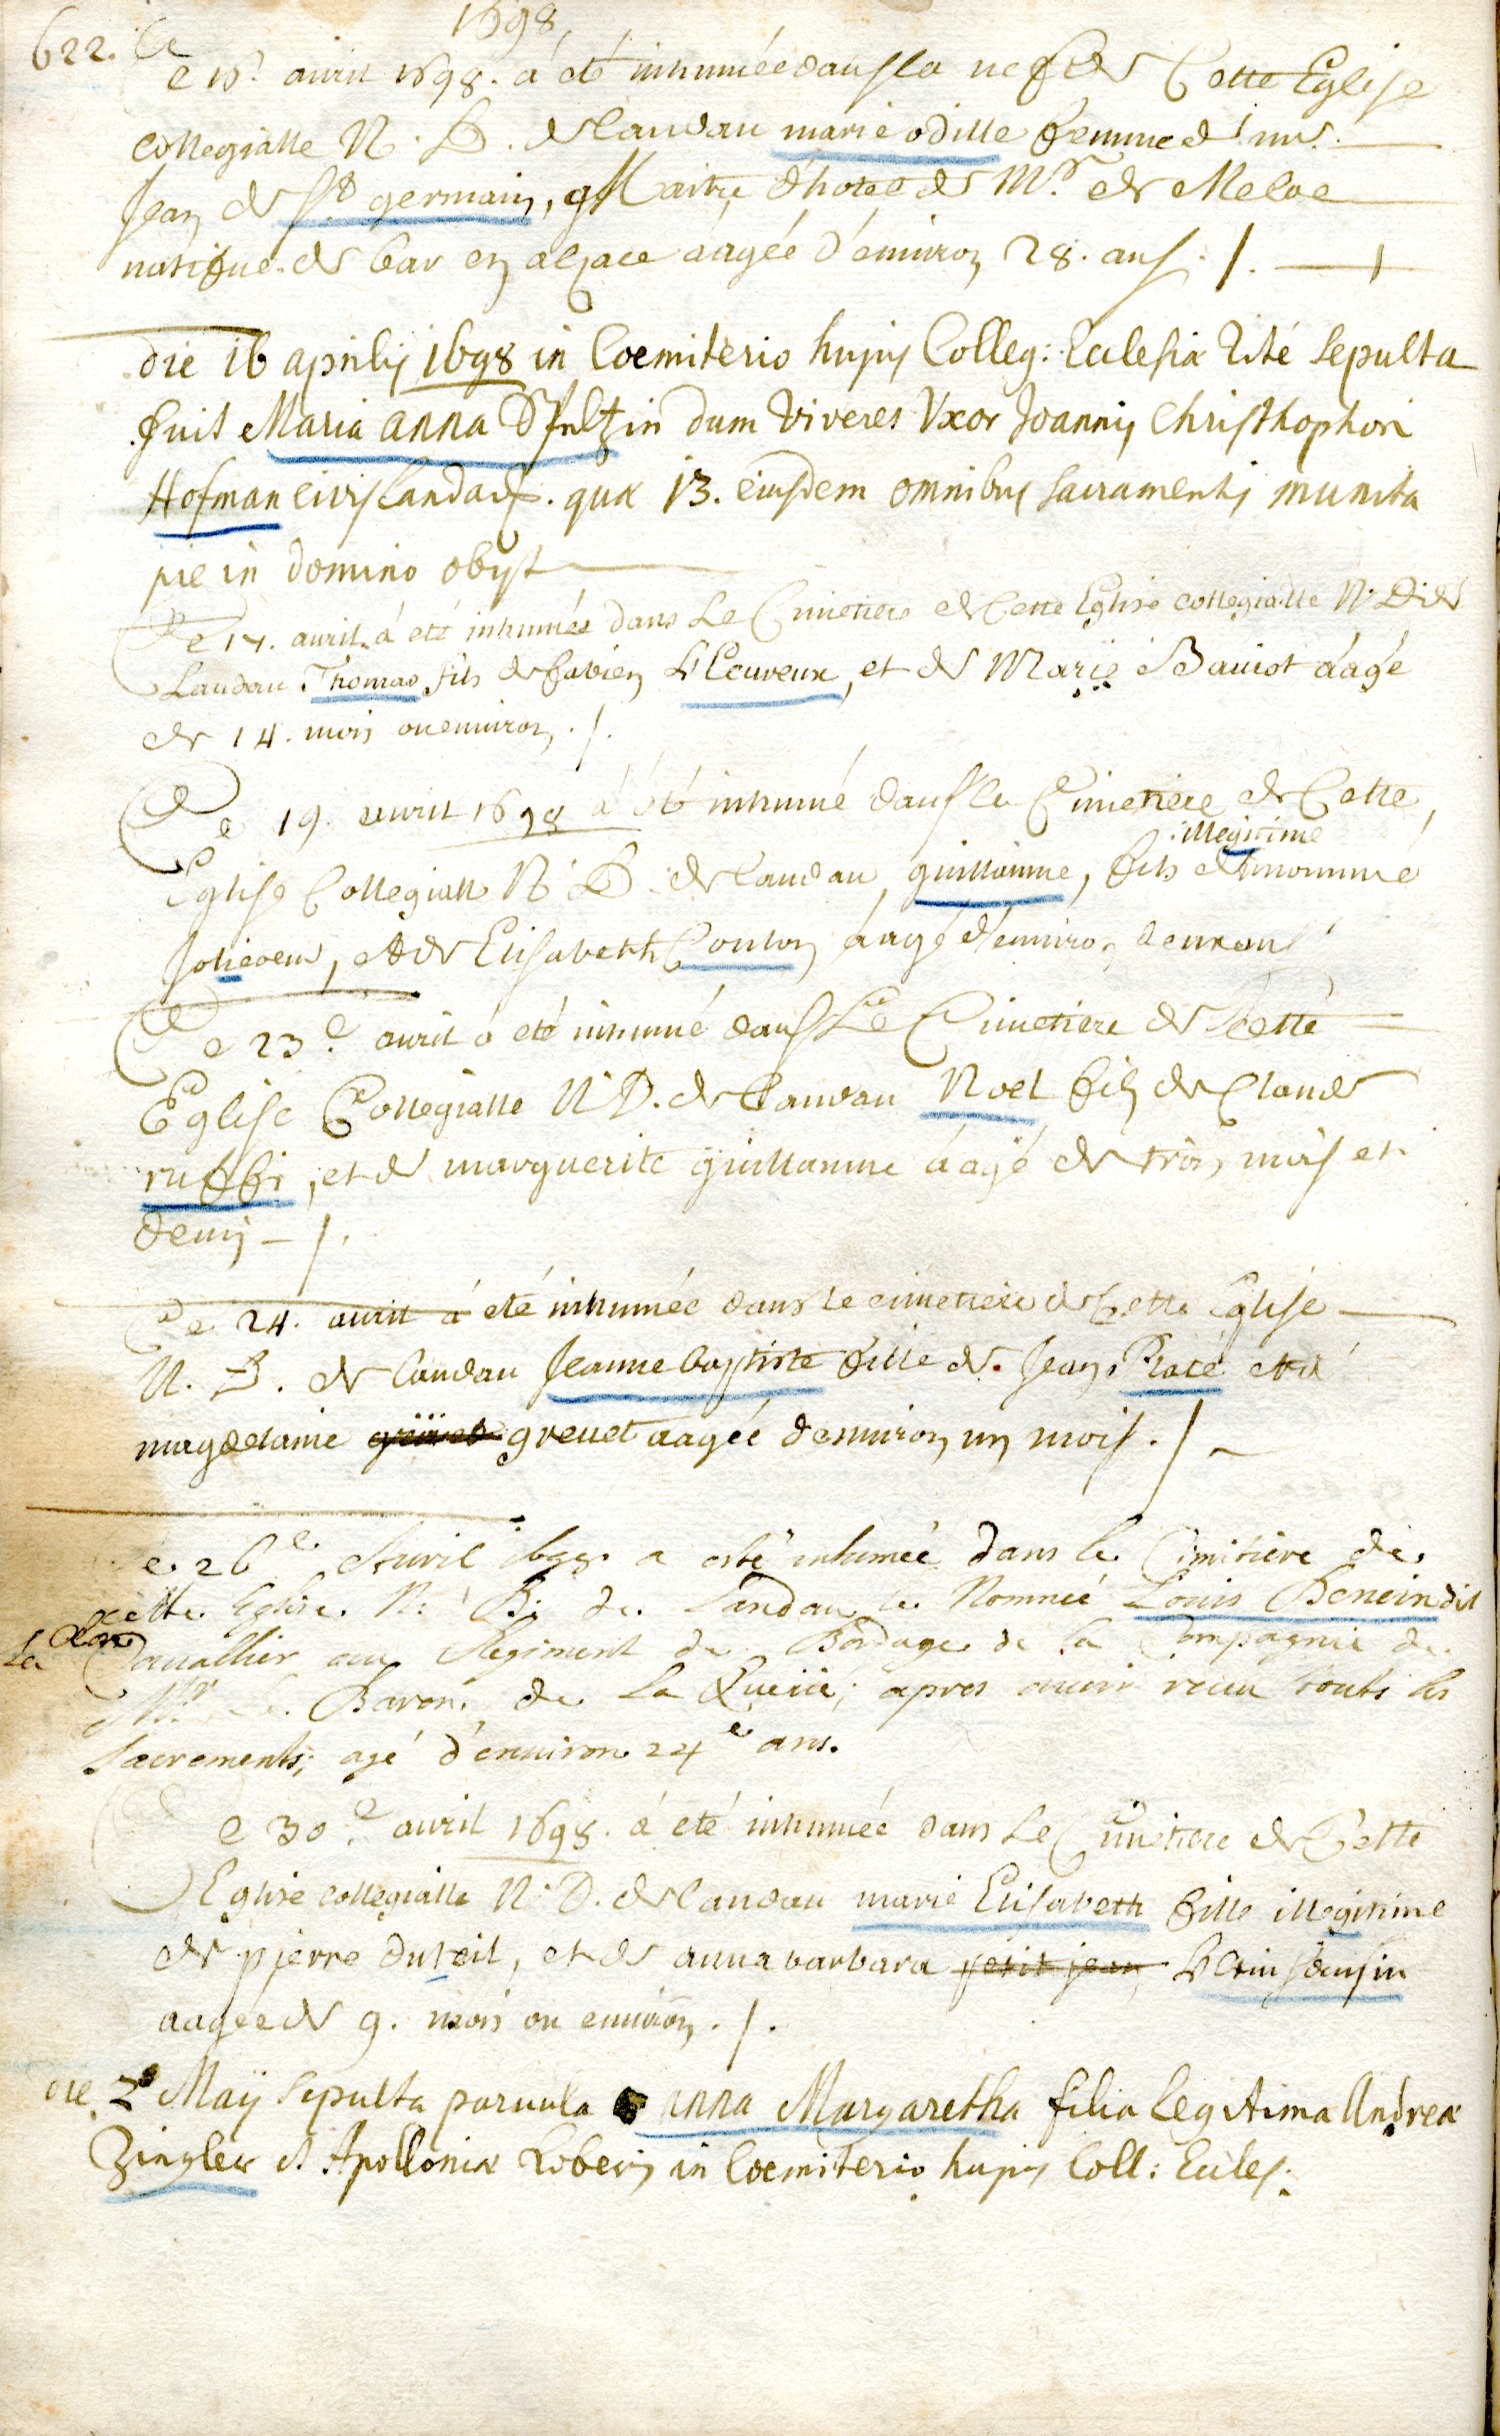 622.
1698
Le 15e. avril 1698. á eté inhumée dans la nef de Cette Eglise
collegialle N. D. de landau marie odille femme de mr.
Jean de St germain, Maitre d'hotel de Mr. de Meloc
natifue de bar en alsace aagée d'environ 28. ans. /.
die 16 aprilis 1698 in Coemiterio hujus Colleg: Ecclesiæ rité sepulta
fuit Maria anna Sultzin dum viveret Uxor Joannis Christhophori
Hofman civis landav. quæ 13. eiusdem omnibus sacramentis munita
pie in domino obyt
Le 17. avril á eté inhumée dans Le Cimetiere de Cette Eglise collegialle N. D. de
Landau Thomas fils de fabien L'Heureux, et de Marie Bauiot áágé
de 14. mois ou environ. /.
Le 19. avril 1698 á été inhumé dans le Cimetiere de Cette
Eglise Collegialle N. D. de landau, guillaume, fils illegitime du nommé
Jolicoeur, et de Elisabeth Coulon áagé d'environ deux ans
Le 23e avril á eté inhumé dans Le Cimetiere de Cette
Eglise Collegialle N. D. de landau Noel fils de Claude
ruffi, et de marguerite guillaume áágé de trois mois et
demy - /.
Le 24. avril á eté inhumée dans le cimetiere de Cette Eglise
N. D. de landau Jeanne baptiste fille de Jean Placé et de
magdelaine greuet aagée d'environ un mois. /
Le 26e Avril 1698 a esté inhumée dans le Cimitiere de
cette Eglise N: D: de Landau le Nommé Louis Benein dit
La Cauallier au Regiment de Bordage de la Compagnie de
Mr. Baron de La Queüe; apres auoir receu touts les
Sacrements; agé d'enuiron 24e ans.
Le 30e avril 1698. á eté inhumée dans Le Cimetiere de Cette
Eglise collegialle N. D. de landau marie Elisabeth fille illegitime
de pierre duteil, et de anna barbara petit jean Kleinhansin
aagée de 9. mois ou environ. /.
die 2 Maÿ sepulta parvula anna Margaretha filia legitima Andreæ
Zingler et Apolloniæ Loberin in Coemiterio hujus Coll: Eccles: